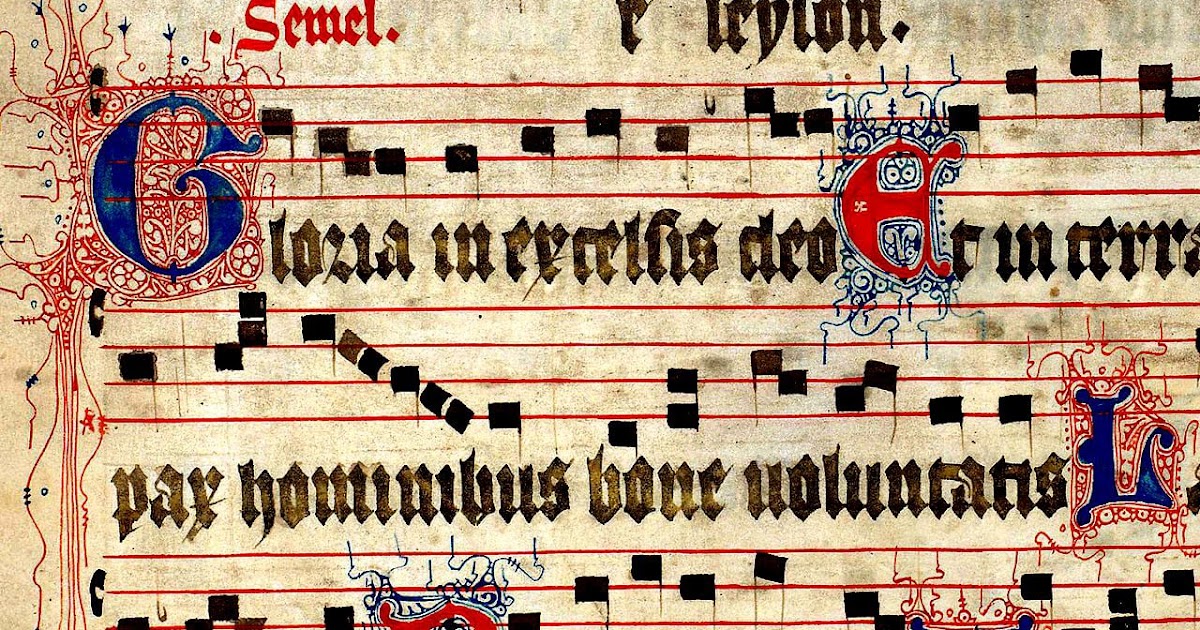 Semel. e leyson.
Gloria in excelsis deo Et in terra
pax hominibus bone uoluntatis L